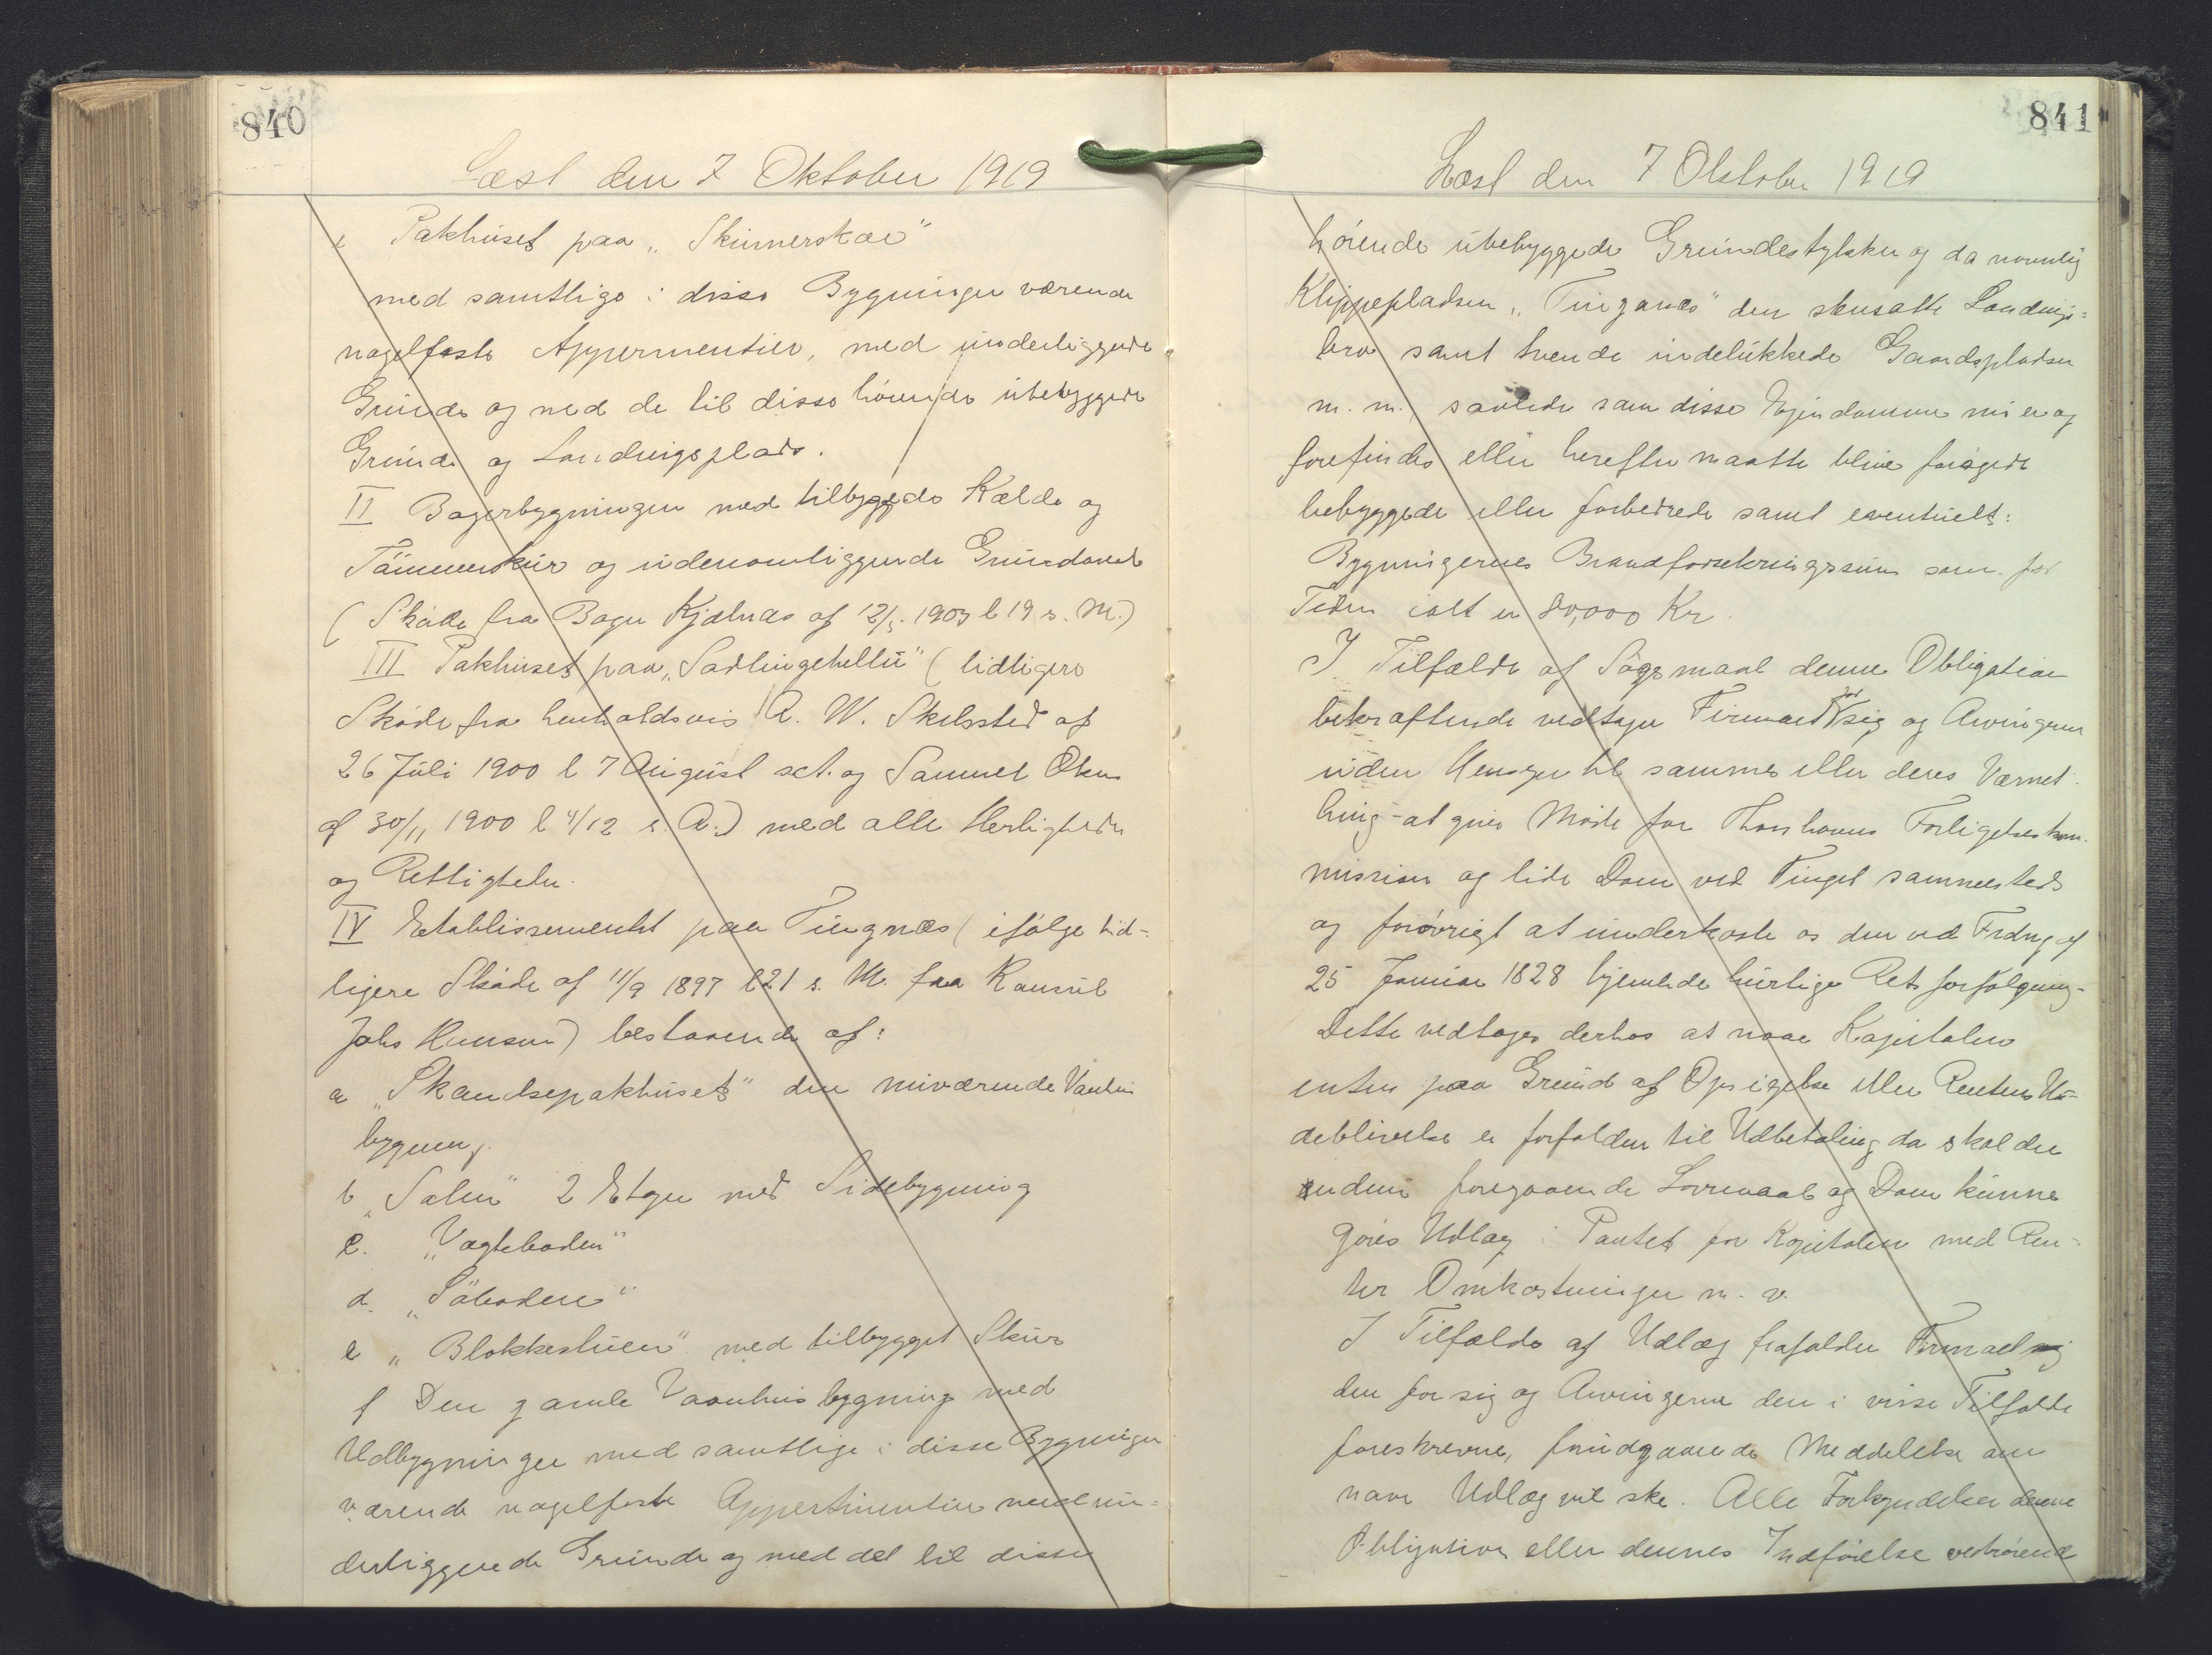 840
Læst den 7 Oktober 1919
e Pakhuset paa „Skinnerskær"
med samtlige i disse Bygninger værende
nagelfaste Appermentier, med underliggende
Grunde og med de til disse hørende ubebyggede
Grunde og Landingsplads.
II Bagerbygningen med tilbyggede Kælde og
Tømmerskur og udenomliggende Grundareal
(Skøde fra Bager Kjølnæs af 12/5 1903 l 19 s. M.)
III Pakhuset paa „Sadlingehellu" (tidligere
Skøde fra henholdsvis A. W. Skelsted af
26 Juli 1900 l 7 August sct. og Samuel
af 30/11 1900 l 4/12 s. A.) med alle Herligheder
og Rettigheder.
IV Etablissementet paa Tingnæs (ifølge tid-
ligere Skøde af 11/9 1897 l 21 s. M. fra Konsul
Johs Hansen) bestaaende af:
a „Skandsepakhuset" den nuværende Vaanhus
bygning.
b „Salen" 2 Etager med Sidebygning
c. „Vægteboden"
d. „Søboden"
e „Blokkestuen" med tilbygget Skur
f Den gamle Vaanhusbygning med
Udbygninger med samtlige i disse Bygninger
værende nagelfaste Appertinentier med un-
derliggende Grunde og med det til disse
841
Læst den 7 Oktober 1919
hørende ubebyggede Grundestykker og da navnlig
Klippepladsen „Tinganæs" den stensatte Landings-
bro samt tvende indelukkede Gaardspladser
m. m. saaledes som disse Ejendomme nu er og
forefindes eller herefter maatte blive forøgede
bebyggede eller forbedrede samt eventuelt:
Bygningernes Brandforsikringssum som for
Tiden ialt er 80,000 Kr.
I Tilfælde af Søgsmaal denne Obligation
bekræftende vedtager Firmaet for sig og Arvingerne
uden Hensyn til sammes eller deres Værne-
ting at give Møde for Thorshavns Forligelseskom-
mission og lide Dom ved Tinget sammesteds
og forøvrigt at underkaste os den ved Frdng af
25 Januar 1828 hjemlede hurtige Retsforfølgning-
Dette vedtages derhos at naar Kapitalen
enten paa Grund af Opsigelse eller Rentens U-
deblivelse er forfalden til Udbetaling da skal der
uden foregaaende Lovmaal og Dom kunne
gøres Udlæg i Pantet for Kapitalen med Ren-
ter Omkostninger m. v.
I Tilfælde af Udlæg frafalder Firmaet
den for sig og Arvingerne den i visse Tilfælde
foreskrevne, forudgaaende Meddelelse om
naar Udlæg vil ske. Alle Forkyndelser denne
Obligation eller dennes Indførelse vedrørende